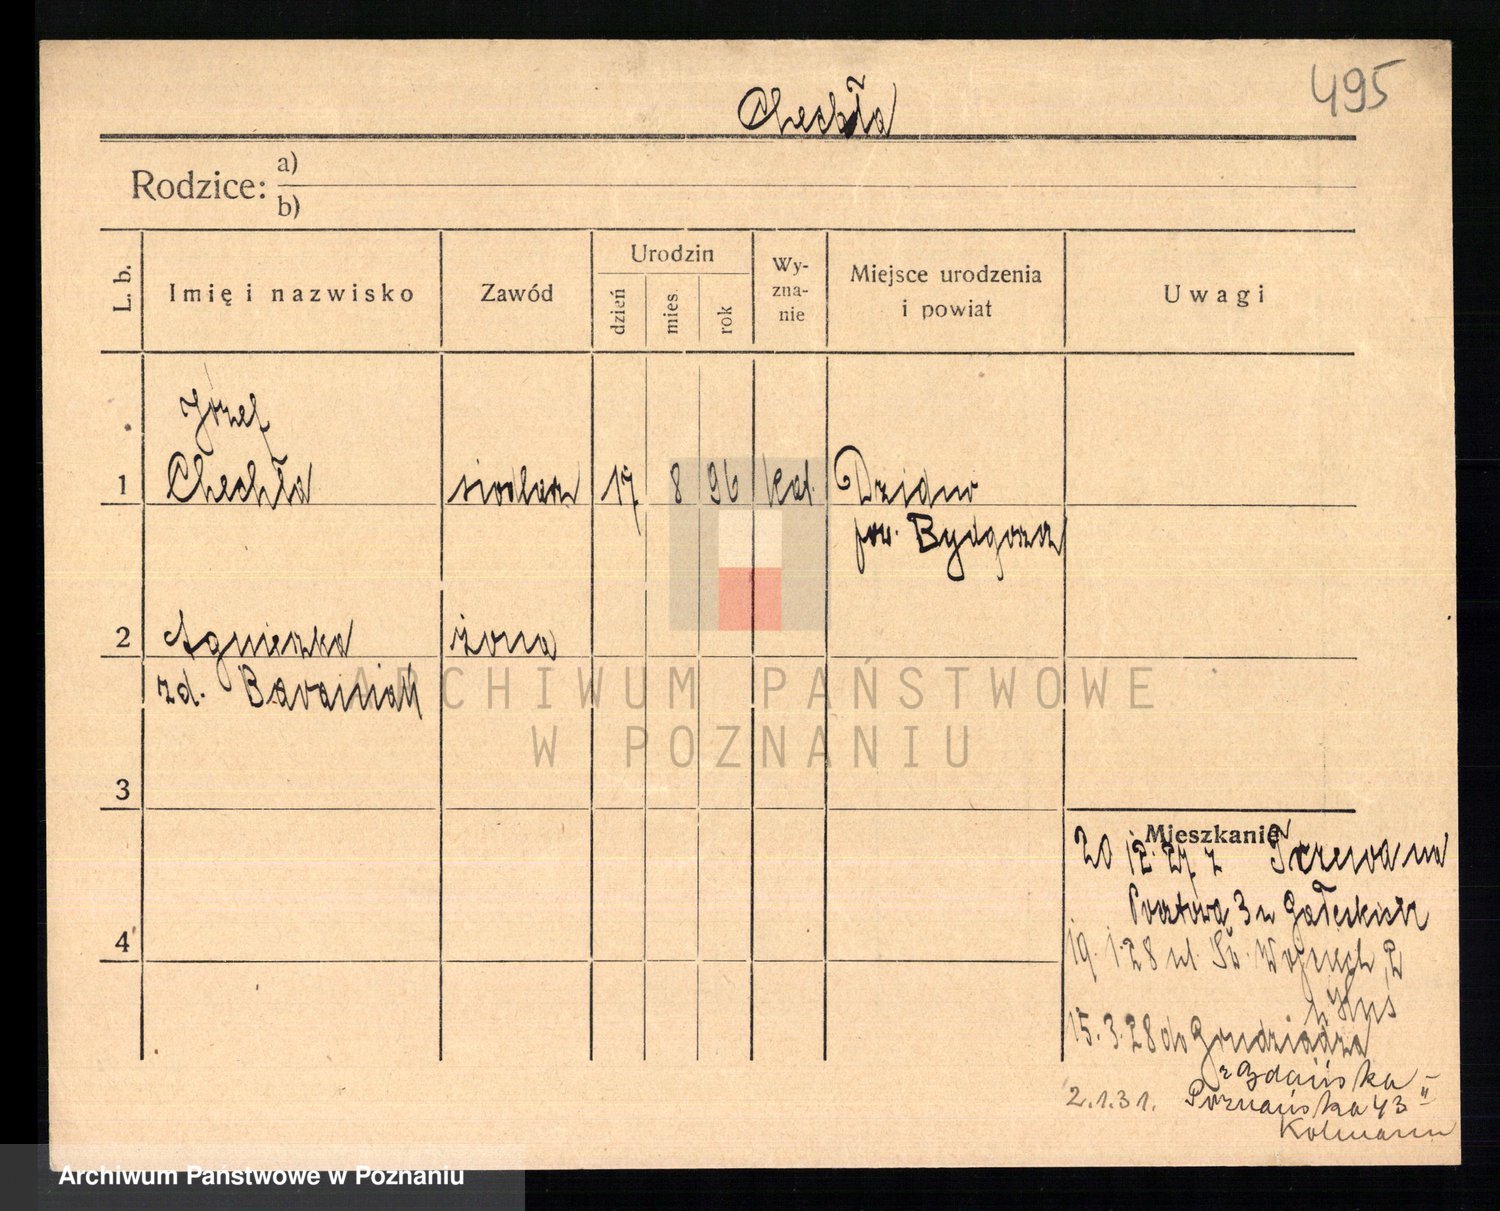 495
Chechła
Rodzice: a)
b)
L. b.
Imię i nazwisko
Zawód
Urodzin
dzień
mies.
rok
Wy-
zna-
nie
Miejsce urodzenia
i powiat
Uwagi
Józef
1 Chechła siodlarz 17 8 96 kat. Dzidno
pow. Bydgoszcz
2 Agnieszka żona
zd.
3
Mieszkanie
20 12. 27 z na
Pocztowa 3
4
19. 1. 28 ul. Św. Wojciech 2
15. 3. 28 do Grudziądza
z Gdańska
2.1.31. Poznańska 43 II
Kolmann
ARCHIWUM PAŃSTWOWE
W POZNANIU
Archiwum Państwowe w Poznaniu